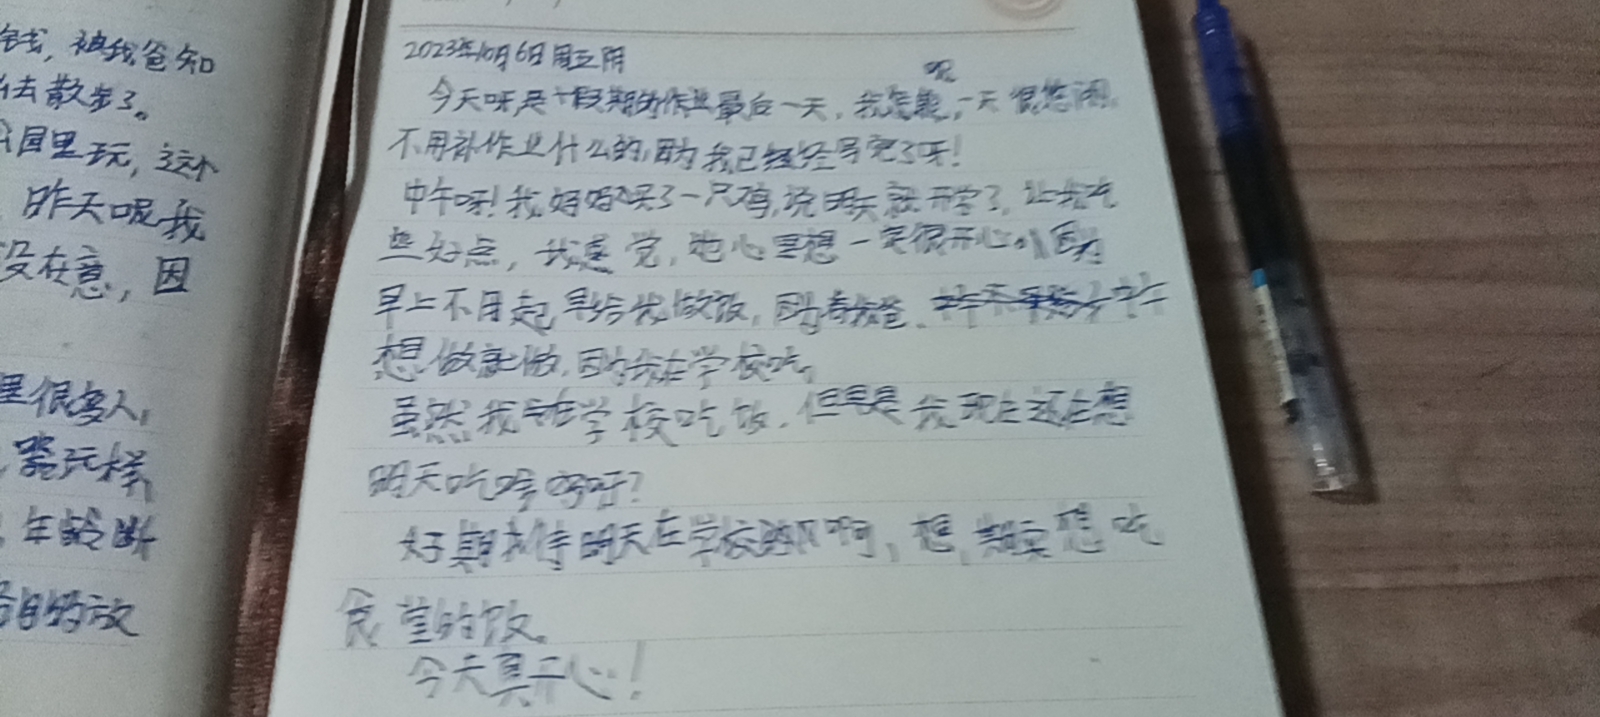 钱，被我爸知
去散步了。
园里玩，这个
昨天呢我
没在意，因
里很多人，
玩样
年龄
的放
2023年10月6日周五阴
呢
今天呀是假期的作业最后一天，我，一天很悠闲，
不用补作业什么的，因为我已经写完了呀！
中午呀！我妈妈买了一只鸡，说明天就开学了，让我吃
些好点，我感觉，她心里想一定很开心。因为
早上不用起早给我做饭，因为我爸，
想做就做，因为我在学校吃。
虽然我在学校吃饭，但是我现在还在想
明天吃啥好呀？
好期待明天在学校的饭啊，想，想吃
食堂的饭。
今天真开心！